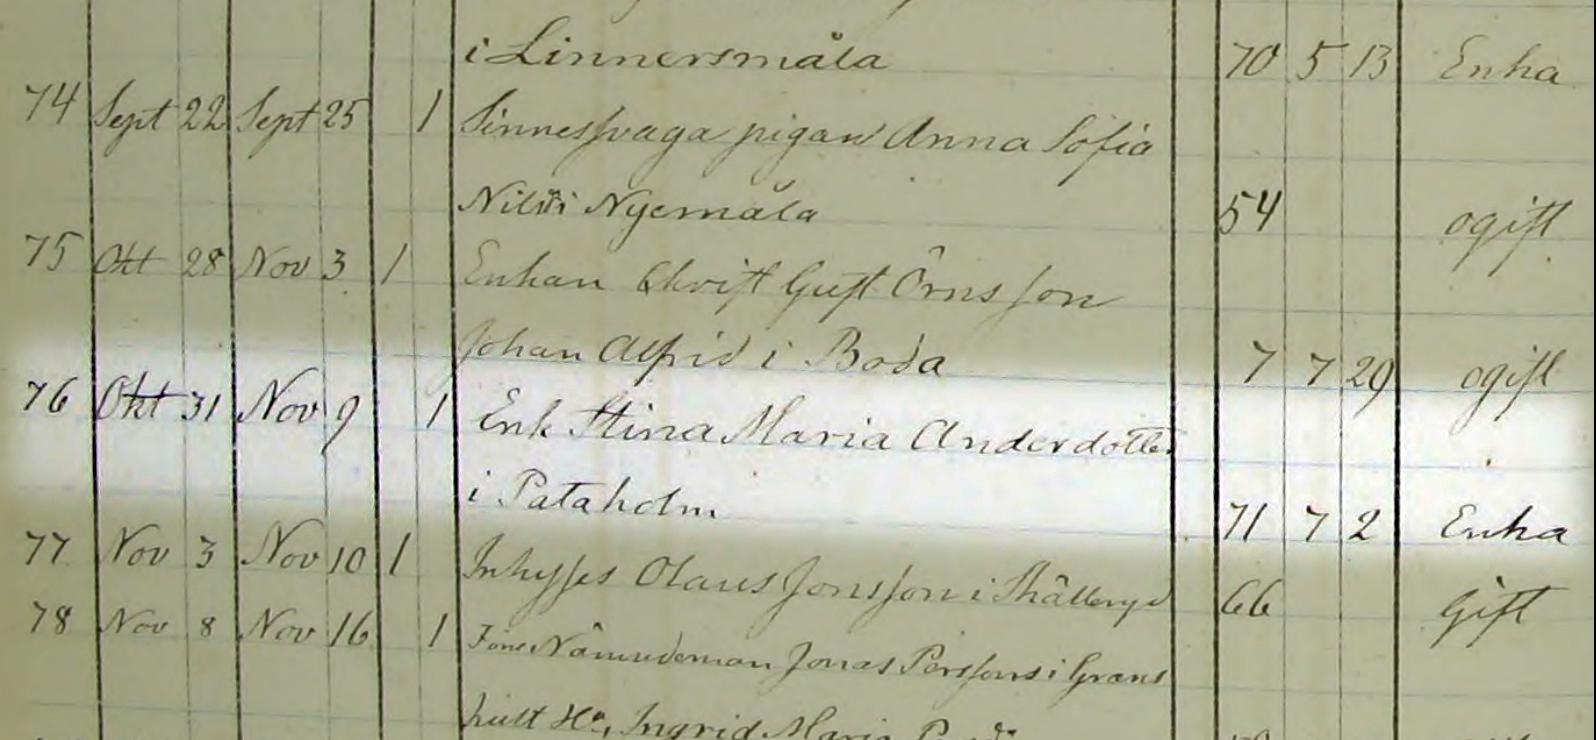 i Linnersmåla 70 5 13 Enka
74 Sept 22 Sept 25 1 Sinnessvaga pigan Anna Sofia
i Nyemåla 54 ogift
75 Okt 28 Nov 3 1 Enkan Christ Gust Örnsson
Johan Alfrid i Boda 7 7 29 ogift
76 Okt 31 Nov 9 1 Enk Stina Maria Anderdotter
i Pataholm 71 7 2 Enka
77 Nov 3 Nov 10 1 Inhysses Olaus Jonsson i Skälleryd 66 Gift
78 Nov 8 Nov 16 1 Nämndeman Jonas Perssons i Gräns
hult Ha, Ingrid Maria